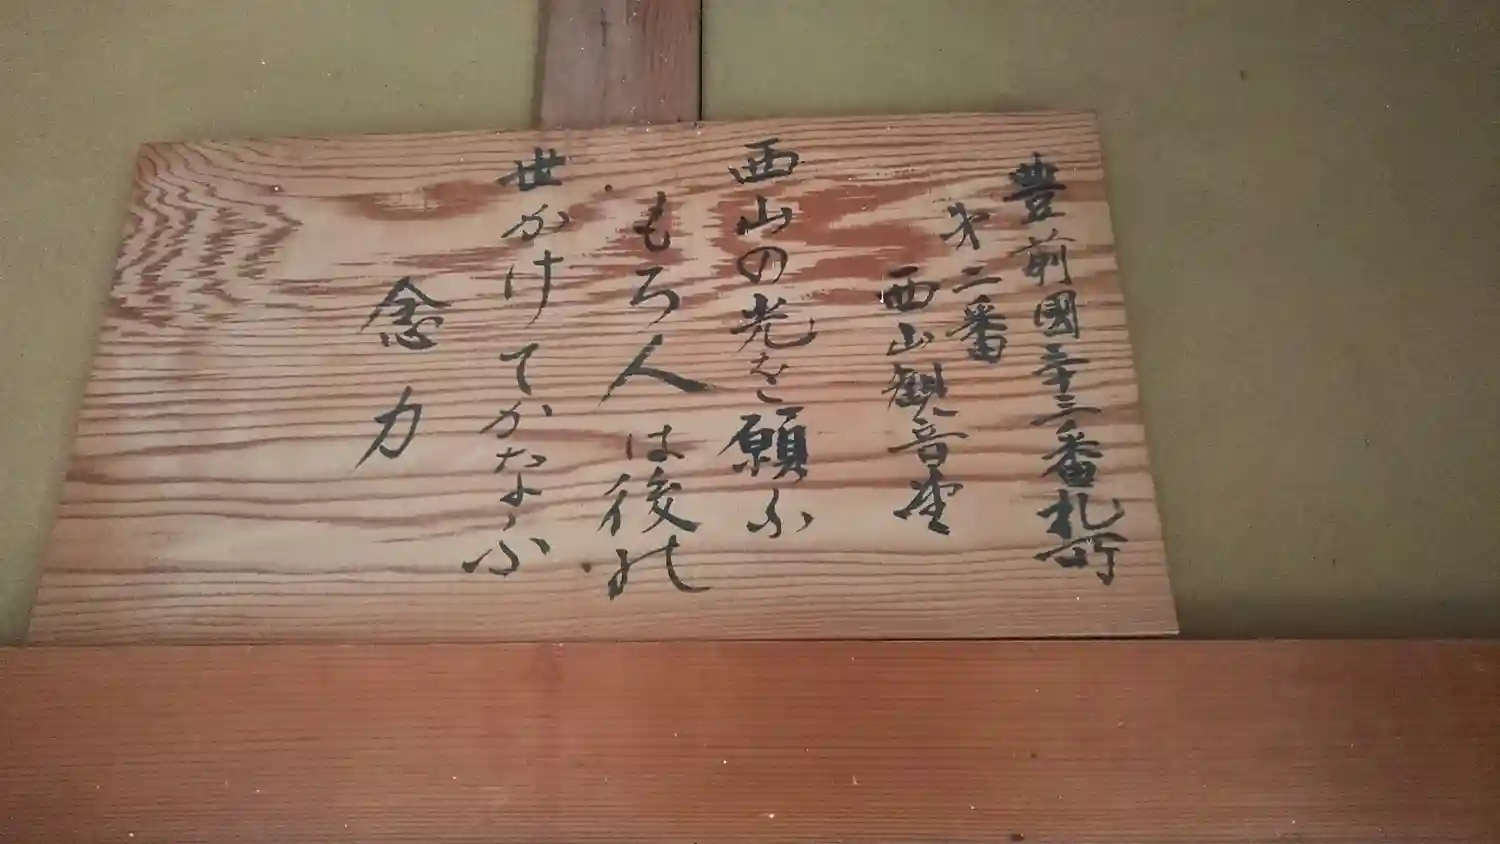 豊前國三十三番札所
㐧二番
西山観音堂
西山の光を願ふ
もろ人は後の
世かけてかなふ
念力